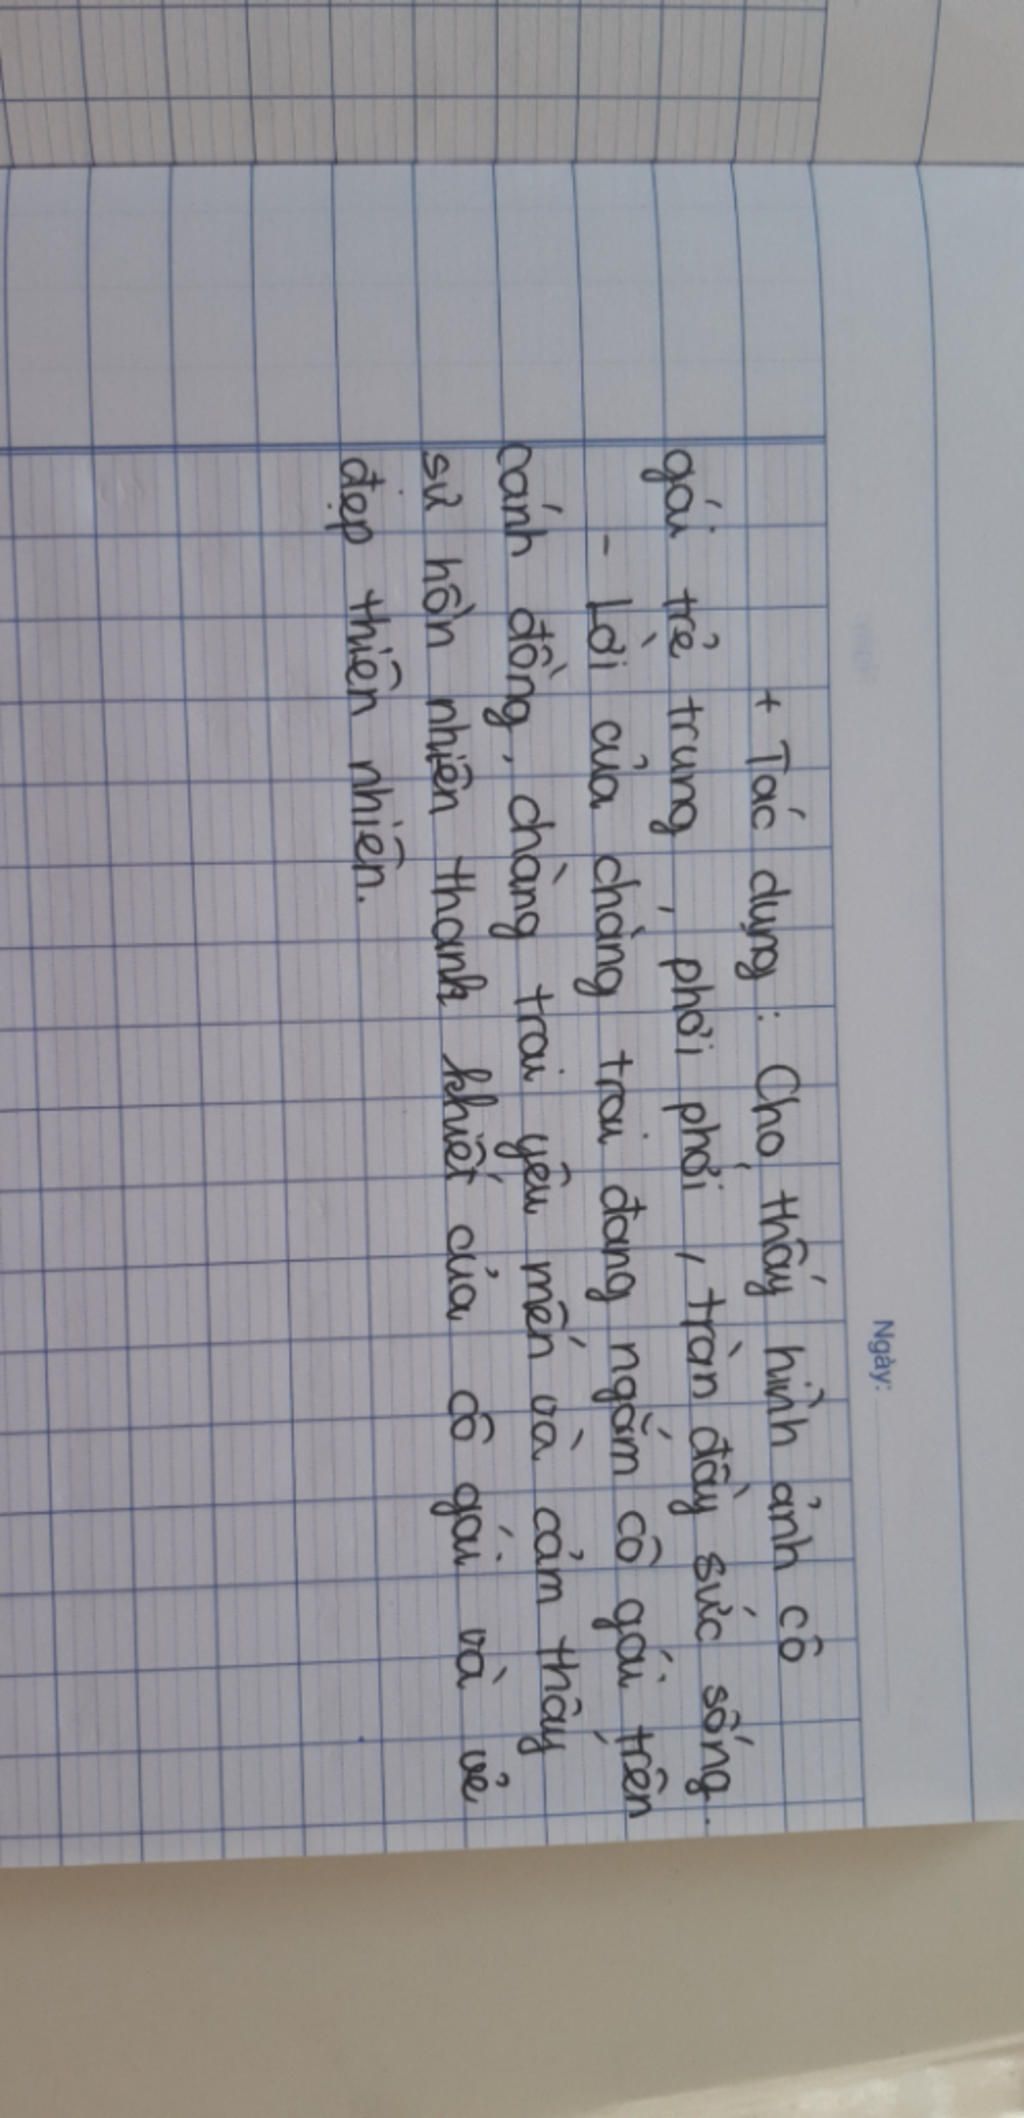 Ngày:
+ Tác dụng : Cho thấy hình ảnh cô
gái trẻ trung , phơi phới , tràn đầy sức sống.
- Lời của chàng trai đang ngắm cô gái trên
cánh đồng, chàng trai yêu mến và cảm thấy
sự hồn nhiên thanh khiết của cô gái và vẻ
đẹp thiên nhiên.